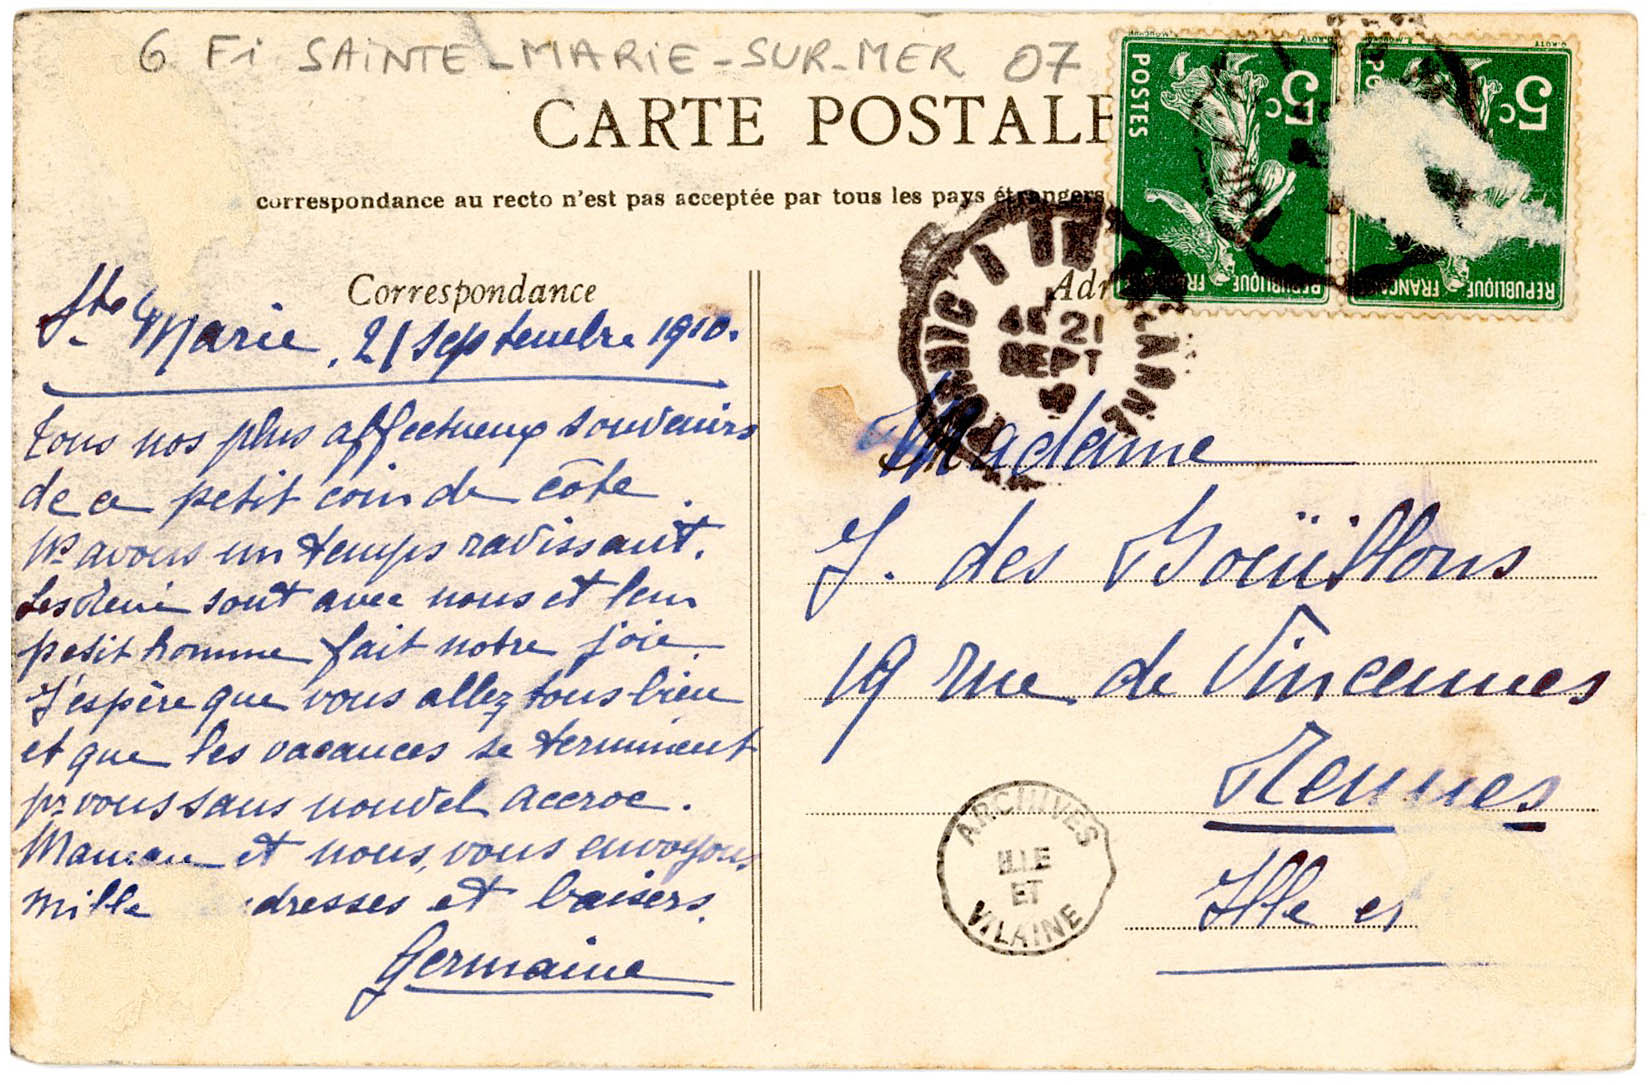 6 Fi SAINTE-MARIE-SUR-MER 07
CARTE POSTALE
correspondance au recto n'est pas acceptée par tous les pays étrangers
Correspondance
Ste Marie, 21 septembre 1910.
Tous nos plus affectueux souvenirs
de ce petit coin de côte.
Ns avons un temps ravissant.
Les René sont avec nous et leur
petit homme fait notre joie.
J'espère que vous allez tous bien
et que les vacances se terminent
pr vous sans nouvel accroc.
Maman et nous, vous envoyons
mille dresses et baisers.
Germaine
Adr
Madame
J. des Boüillons
19 rue de Vincennes
Rennes
Ille et
POSTES
5c
REPUBLIQUE FRANÇAISE
5c
REPUBLIQUE FRANÇAISE
PORNIC
21
SEPT
ARCHIVES
ILLE
ET
VILAINE